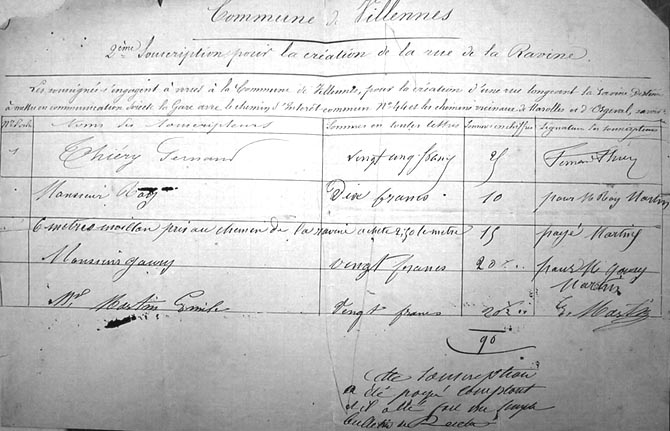 Commune de Villennes
2ème Souscription pour la création de la rue de la Ravine.
Les soussignés s'engagent à verser à la Commune de Villennes, pour la création d'une rue longeant la ravine destinée
à mettre en communication directe la Gare avec le chemin d'Intérêt commun Nº 44 et les chemins vicinaux de Marolles et d'Orgeval, savoir:
Noms des Souscripteurs Sommes en toutes lettres Sommes en chiffres Signature des souscripteurs
1 Thiéry Fernand Vingt cinq francs 25 Fernand Thiéry
Monsieur Roy Dix francs 10 pour M Roy Martin
6 metres moillon pris au chemin de la ravine a 2,50 le metre 15 payé Martin
Monsieur Gaury Vingt francs 20 pour M Gaury
Martin
Mr Martin Emile Vingt francs 20 E. Martin
90
Cette souscription
a été payé comptant
et il a été fait un
bulletin de